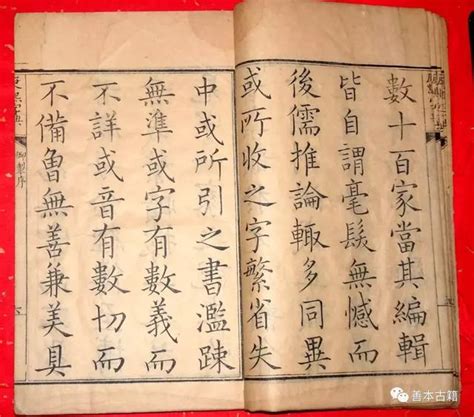 數十百家當其編輯
皆自謂毫髮無憾而
後儒推論輒多同異
或所收之字繁省失
中或所引之書濫疎
無準或字有數義而
不詳或音有數切而
不備曾無善兼美具
康熙字典
御製序
善本古籍